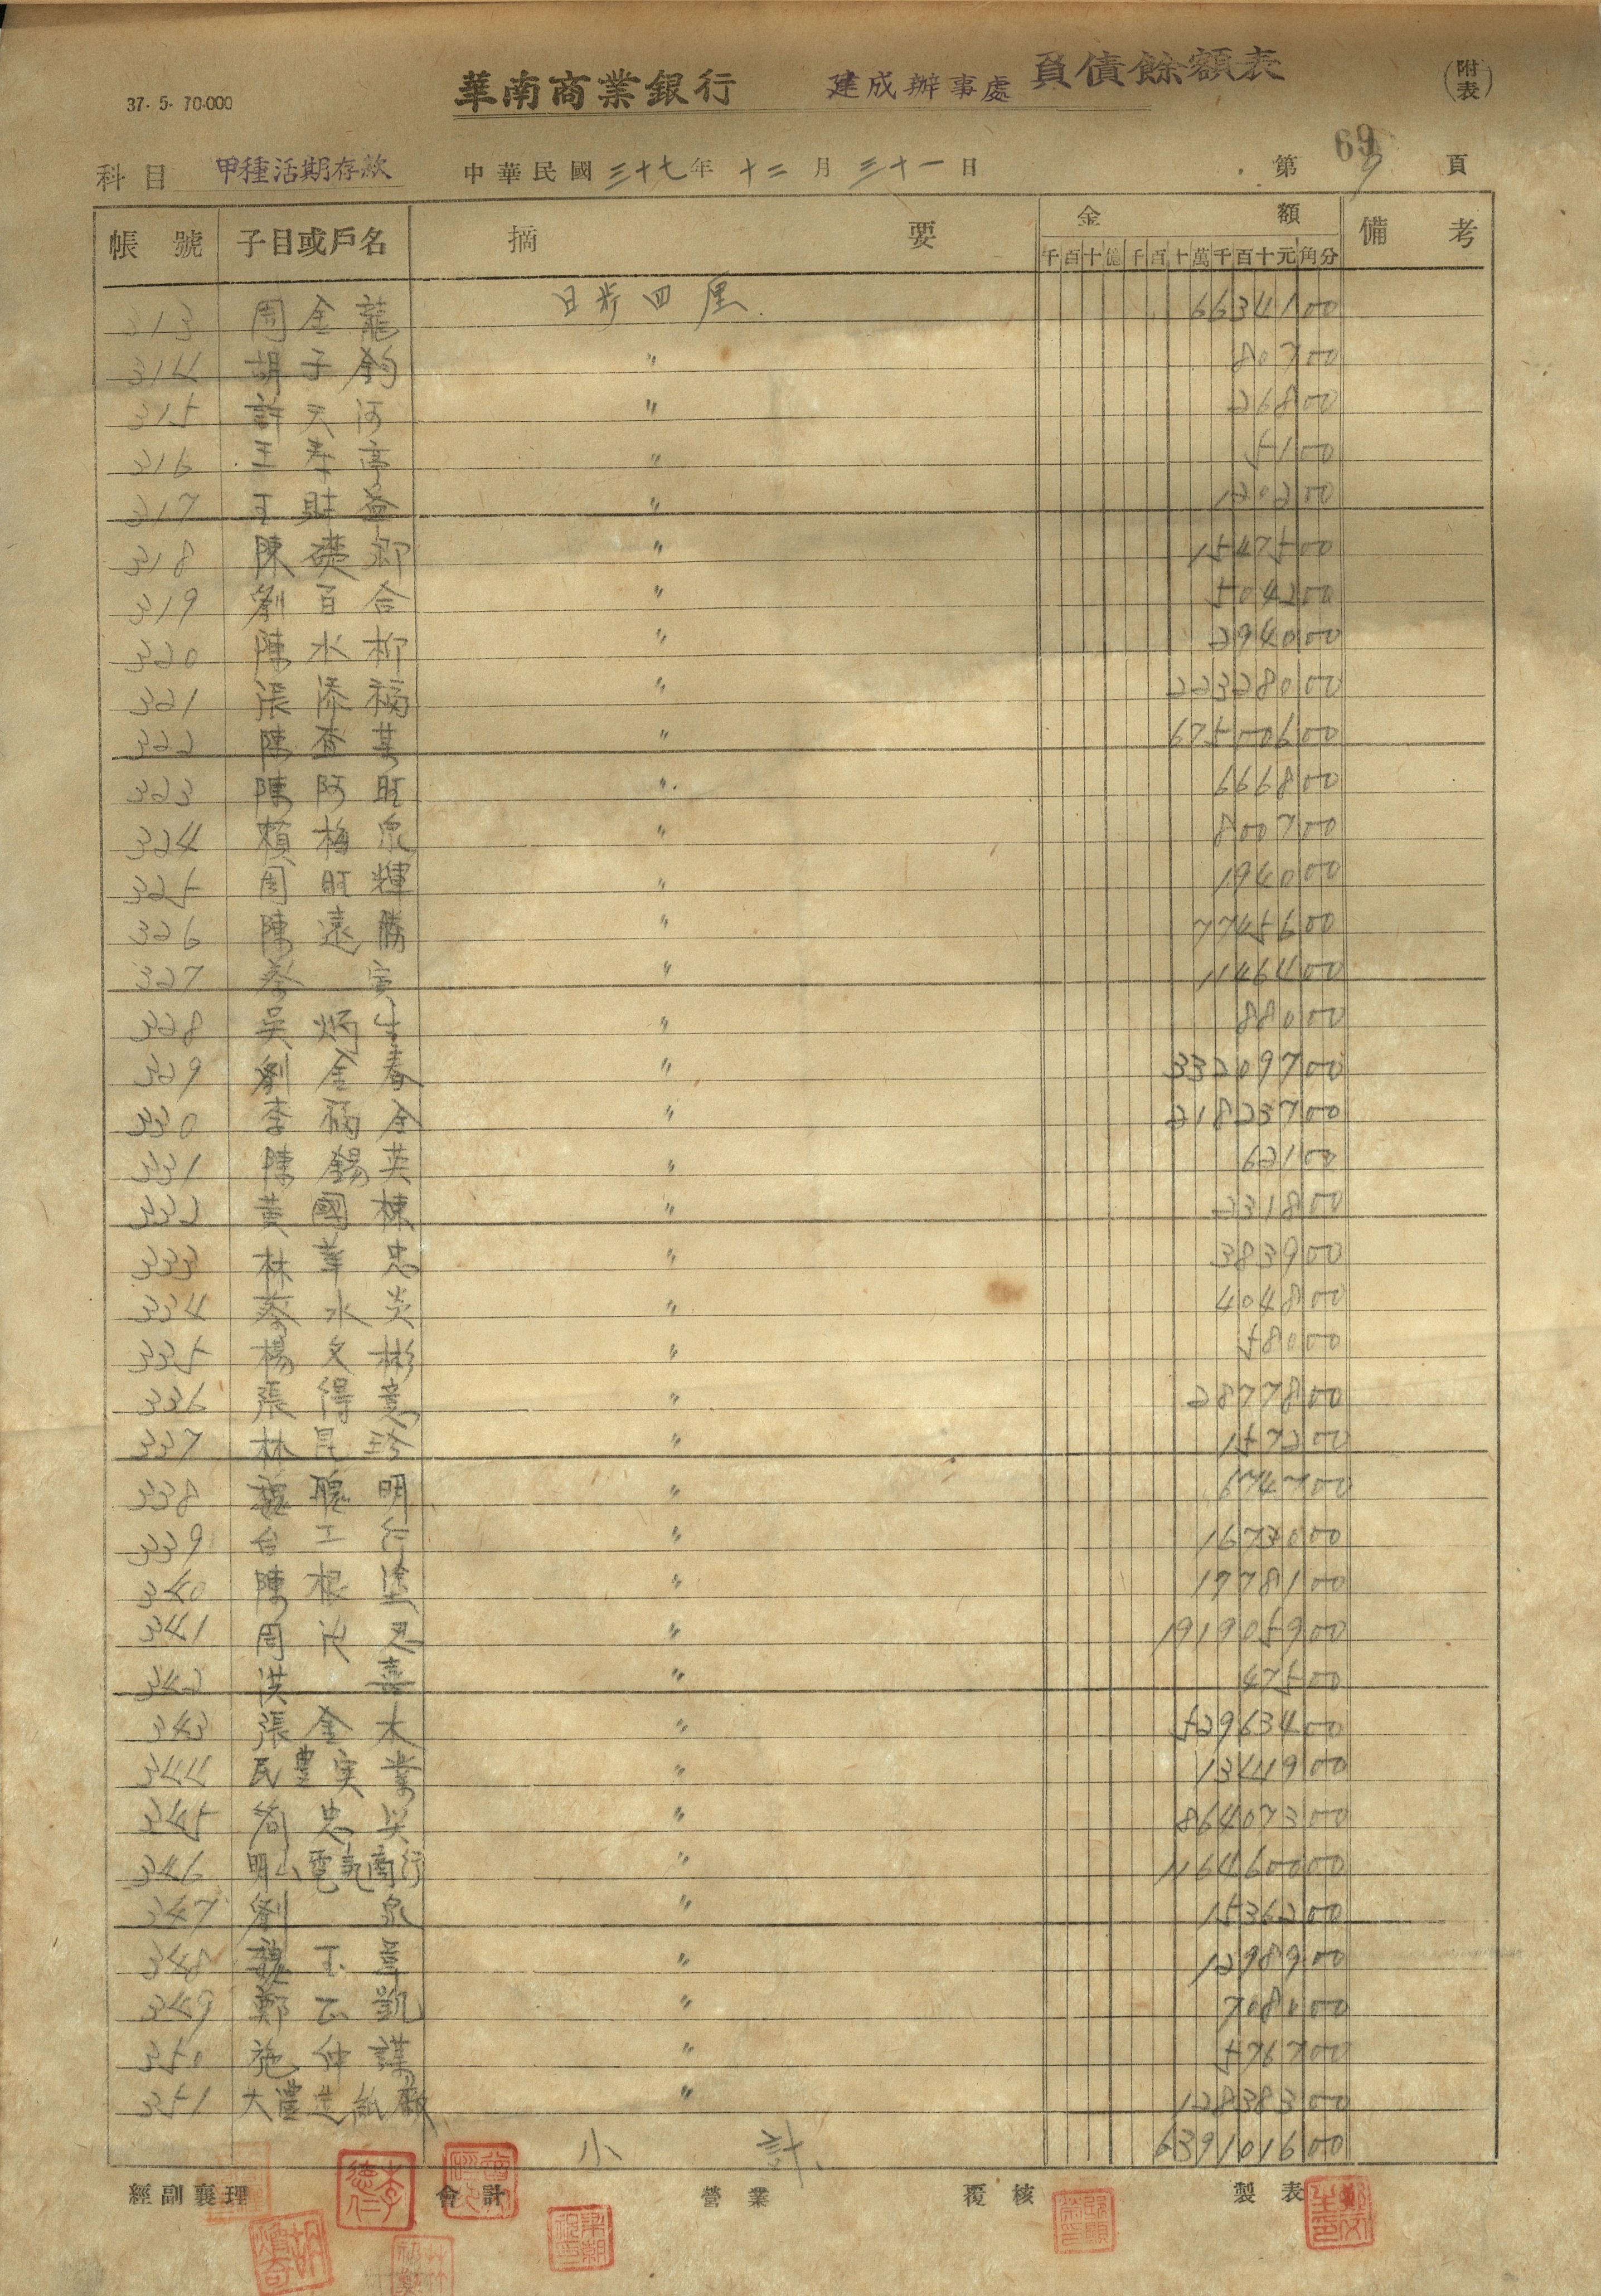 37. 5. 70.000
華南商業銀行 建成辦事處 負債餘額表 (附表)
69
科目 甲種活期存款 中華民國三十七年十二月三十一日 第9頁
帳號 子目或戶名 摘要 金額 備考
千百十億千百十萬千百十元角分
313 周金龍 日步四厘 6634100
314 胡子鈞 〃 80700
315 許天河 〃 26800
316 王春亭 〃 5100
317 王財益 〃 120200
318 陳礎卿 〃 1547500
319 劉百合 〃 504200
320 陳水柳 〃 294000
321 張添福 〃 22328000
322 陳查某 〃 67500600
323 陳阿旺 〃 666800
324 賴梅泉 〃 800700
325 周旺輝 〃 194000
326 陳遠勝 〃 7745600
327 蔡寅 〃 1146400
328 吳炳生 〃 88000
329 劉金春 〃 33209700
330 李福全 〃 21823700
331 陳錫英 〃 62100
332 黃國棟 〃 231800
333 林華忠 〃 383900
334 蔡水炎 〃 404800
335 楊文彬 〃 58000
336 張得意 〃 2877800
337 林昆珍 〃 157200
338 魏聰明 〃 674700
339 台工行 〃 1673000
340 陳根塗 〃 1778100
341 周 忍 〃 191905900
342 洪喜 〃 47500
343 張金木 〃 52963400
344 民豊実業 〃 1344900
345 忠 〃 86407300
346 明山電気商行 〃 116460000
347 劉泉 〃 1536200
348 魏玉 〃 1298900
349 鄭正凱 〃 708000
350 施仲謀 〃 576700
351 大豊造紙廠 〃 12838300
小計 639101600
經副襄理 會計 營業 覆核 製表
李德仁